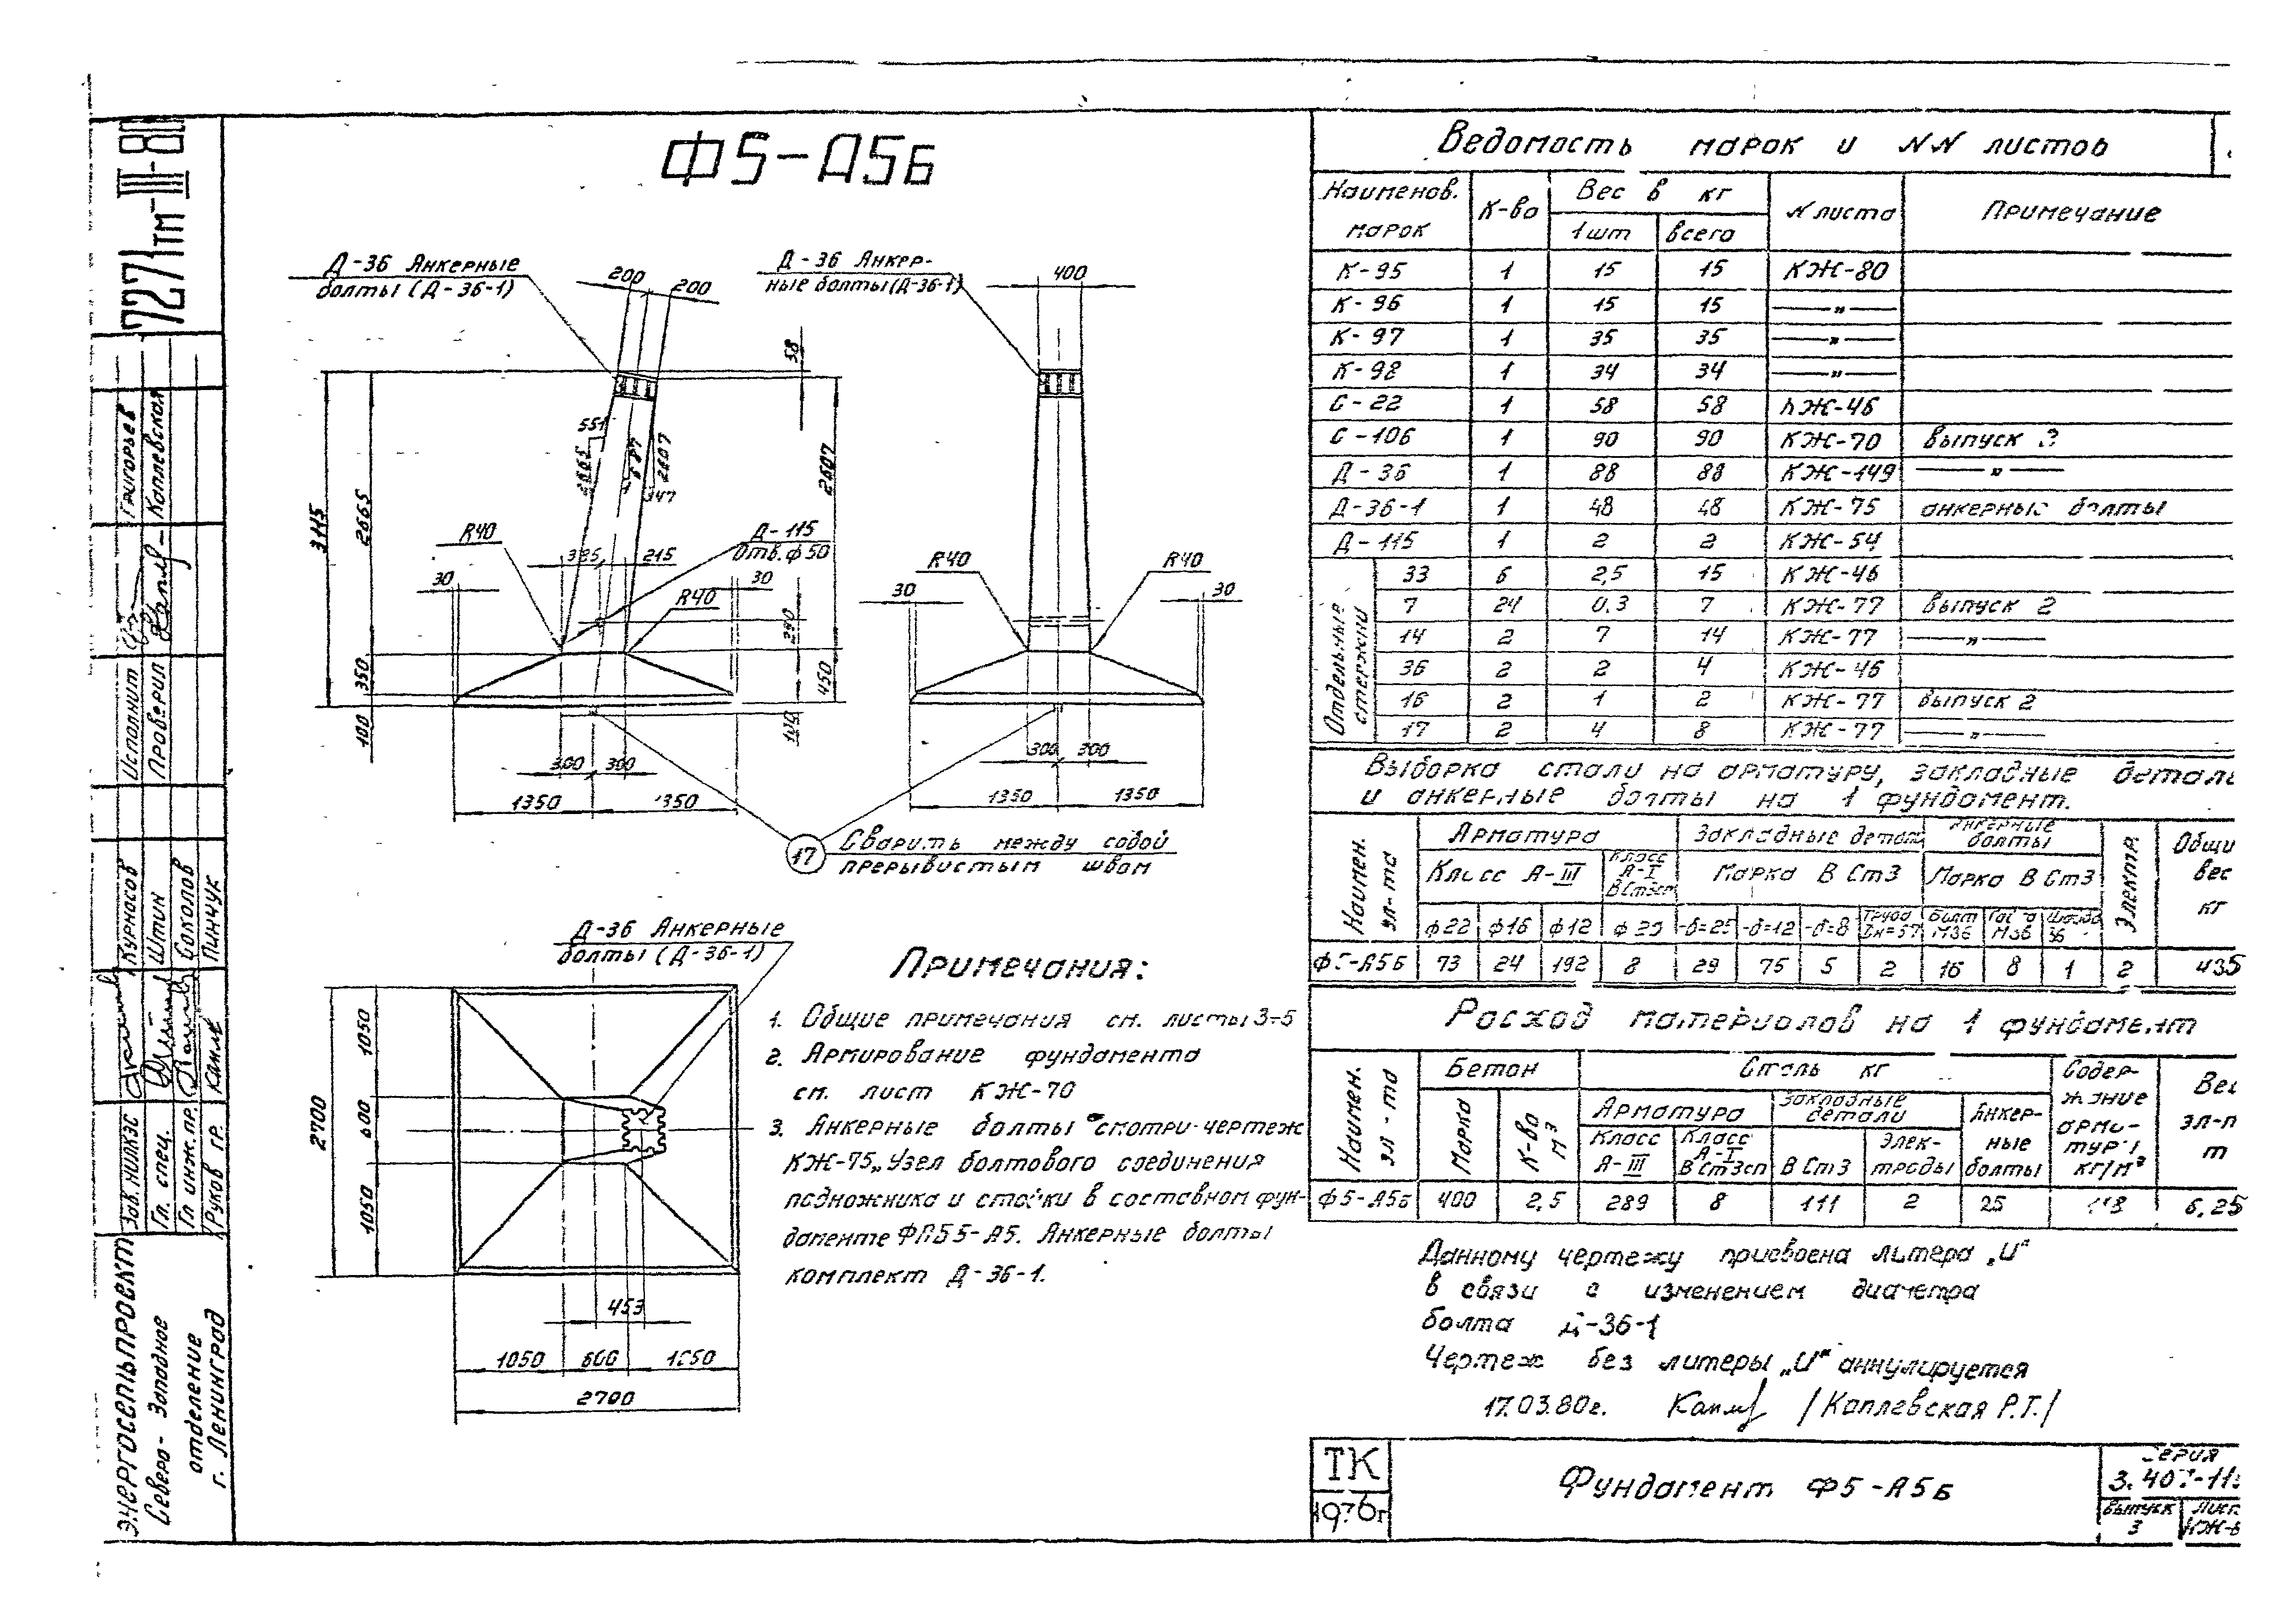 Ф5-А5Б
Д-36 Анкерные
болты (Д-36-1)
200
200
Д-36 Анкер-
ные болты (Д-36-1)
400
58
551
2665
2607
347
3115
2665
2607
R40
Д-115
Отв. ф50
385
215
30
30
R40
290
350
450
100
100
300
300
1350
1350
R40
R40
30
30
300
300
1350
1350
17
Сварить между собой
прерывистым швом
Д-36 Анкерные
болты (Д-36-1)
2700
1050
600
1050
453
1050
600
1050
2700
Примечания:
1. Общие примечания см. листы 3÷5
2. Армирование фундамента
см. лист КЖ-70
3. Анкерные болты смотри чертеж
КЖ-75 „Узел болтового соединения
подножника и стойки в составном фун-
даменте
Анкерные болты
комплект Д-36-1.
Ведомость марок и NN листов
Наименов. марок К-во Вес в кг N листа Примечание
1шт всего
К-95 1 15 15 КЖ-80
К-96 1 15 15 — " —
К-97 1 35 35 — " —
К-98 1 34 34 — " —
С-22 1 58 58 КЖ-46
С-106 1 90 90 КЖ-70 выпуск 3
Д-36 1 88 88 КЖ-149 — " —
Д-36-1 1 48 48 КЖ-75 анкерные болты
Д-115 1 2 2 КЖ-54
Отдельные стержни
33 6 2,5 15 КЖ-46
7 24 0,3 7 КЖ-77 выпуск 2
14 2 7 14 КЖ-77 — " —
36 2 2 4 КЖ-46
16 2 1 2 КЖ-77 выпуск 2
17 2 4 8 КЖ-77 — " —
Выборка стали на арматуру, закладные детали
и анкерные болты на 1 фундамент.
Наимен. эл-та Арматура Закладные детал Анкерные болты Электр. Общи вес кг
Класс А-III Класс А-I ВСт3сп Марка В Ст3 Марка В Ст3
ф22 ф16 ф12 ф20 -δ=25 -δ=12 -δ=8 Труба Dн=57 Болт М36 Гайка М36 Шайба 36
Ф5-А5Б 73 24 192 8 29 75 5 2 16 8 1 2 435
Расход материалов на 1 фундамент
Наимен. эл-та Бетон Сталь кг Содер- жание арма- туры кг/м³ Вес эл-т т
Марка К-во м³ Арматура Закладные детали Анкер- ные болты
Класс А-III Класс А-I В Ст3сп В Ст3 Элек- троды
Ф5-А5Б 400 2,5 289 8 111 2 25 118 6,25
Данному чертежу присвоена литера „И"
в связи с изменением диаметра
болта Д-36-1
Чертеж без литеры „И" аннулируется
17.03.80г. /Каплевская Р.Т./
ТК
1976г
Фундамент Ф5-А5Б
Серия
Выпуск
3
Лист
7271тм-III-80
Исполнит Григорьев
Проверил Каплевская
Зав. НИЛКЭС Курносов
Гл. спец. Штин
Гл инж. пр. Соколов
Руков гр. Пинчук
ЭНЕРГОСЕЛЬПРОЕКТ
Северо-Западное
отделение
г. Ленинград